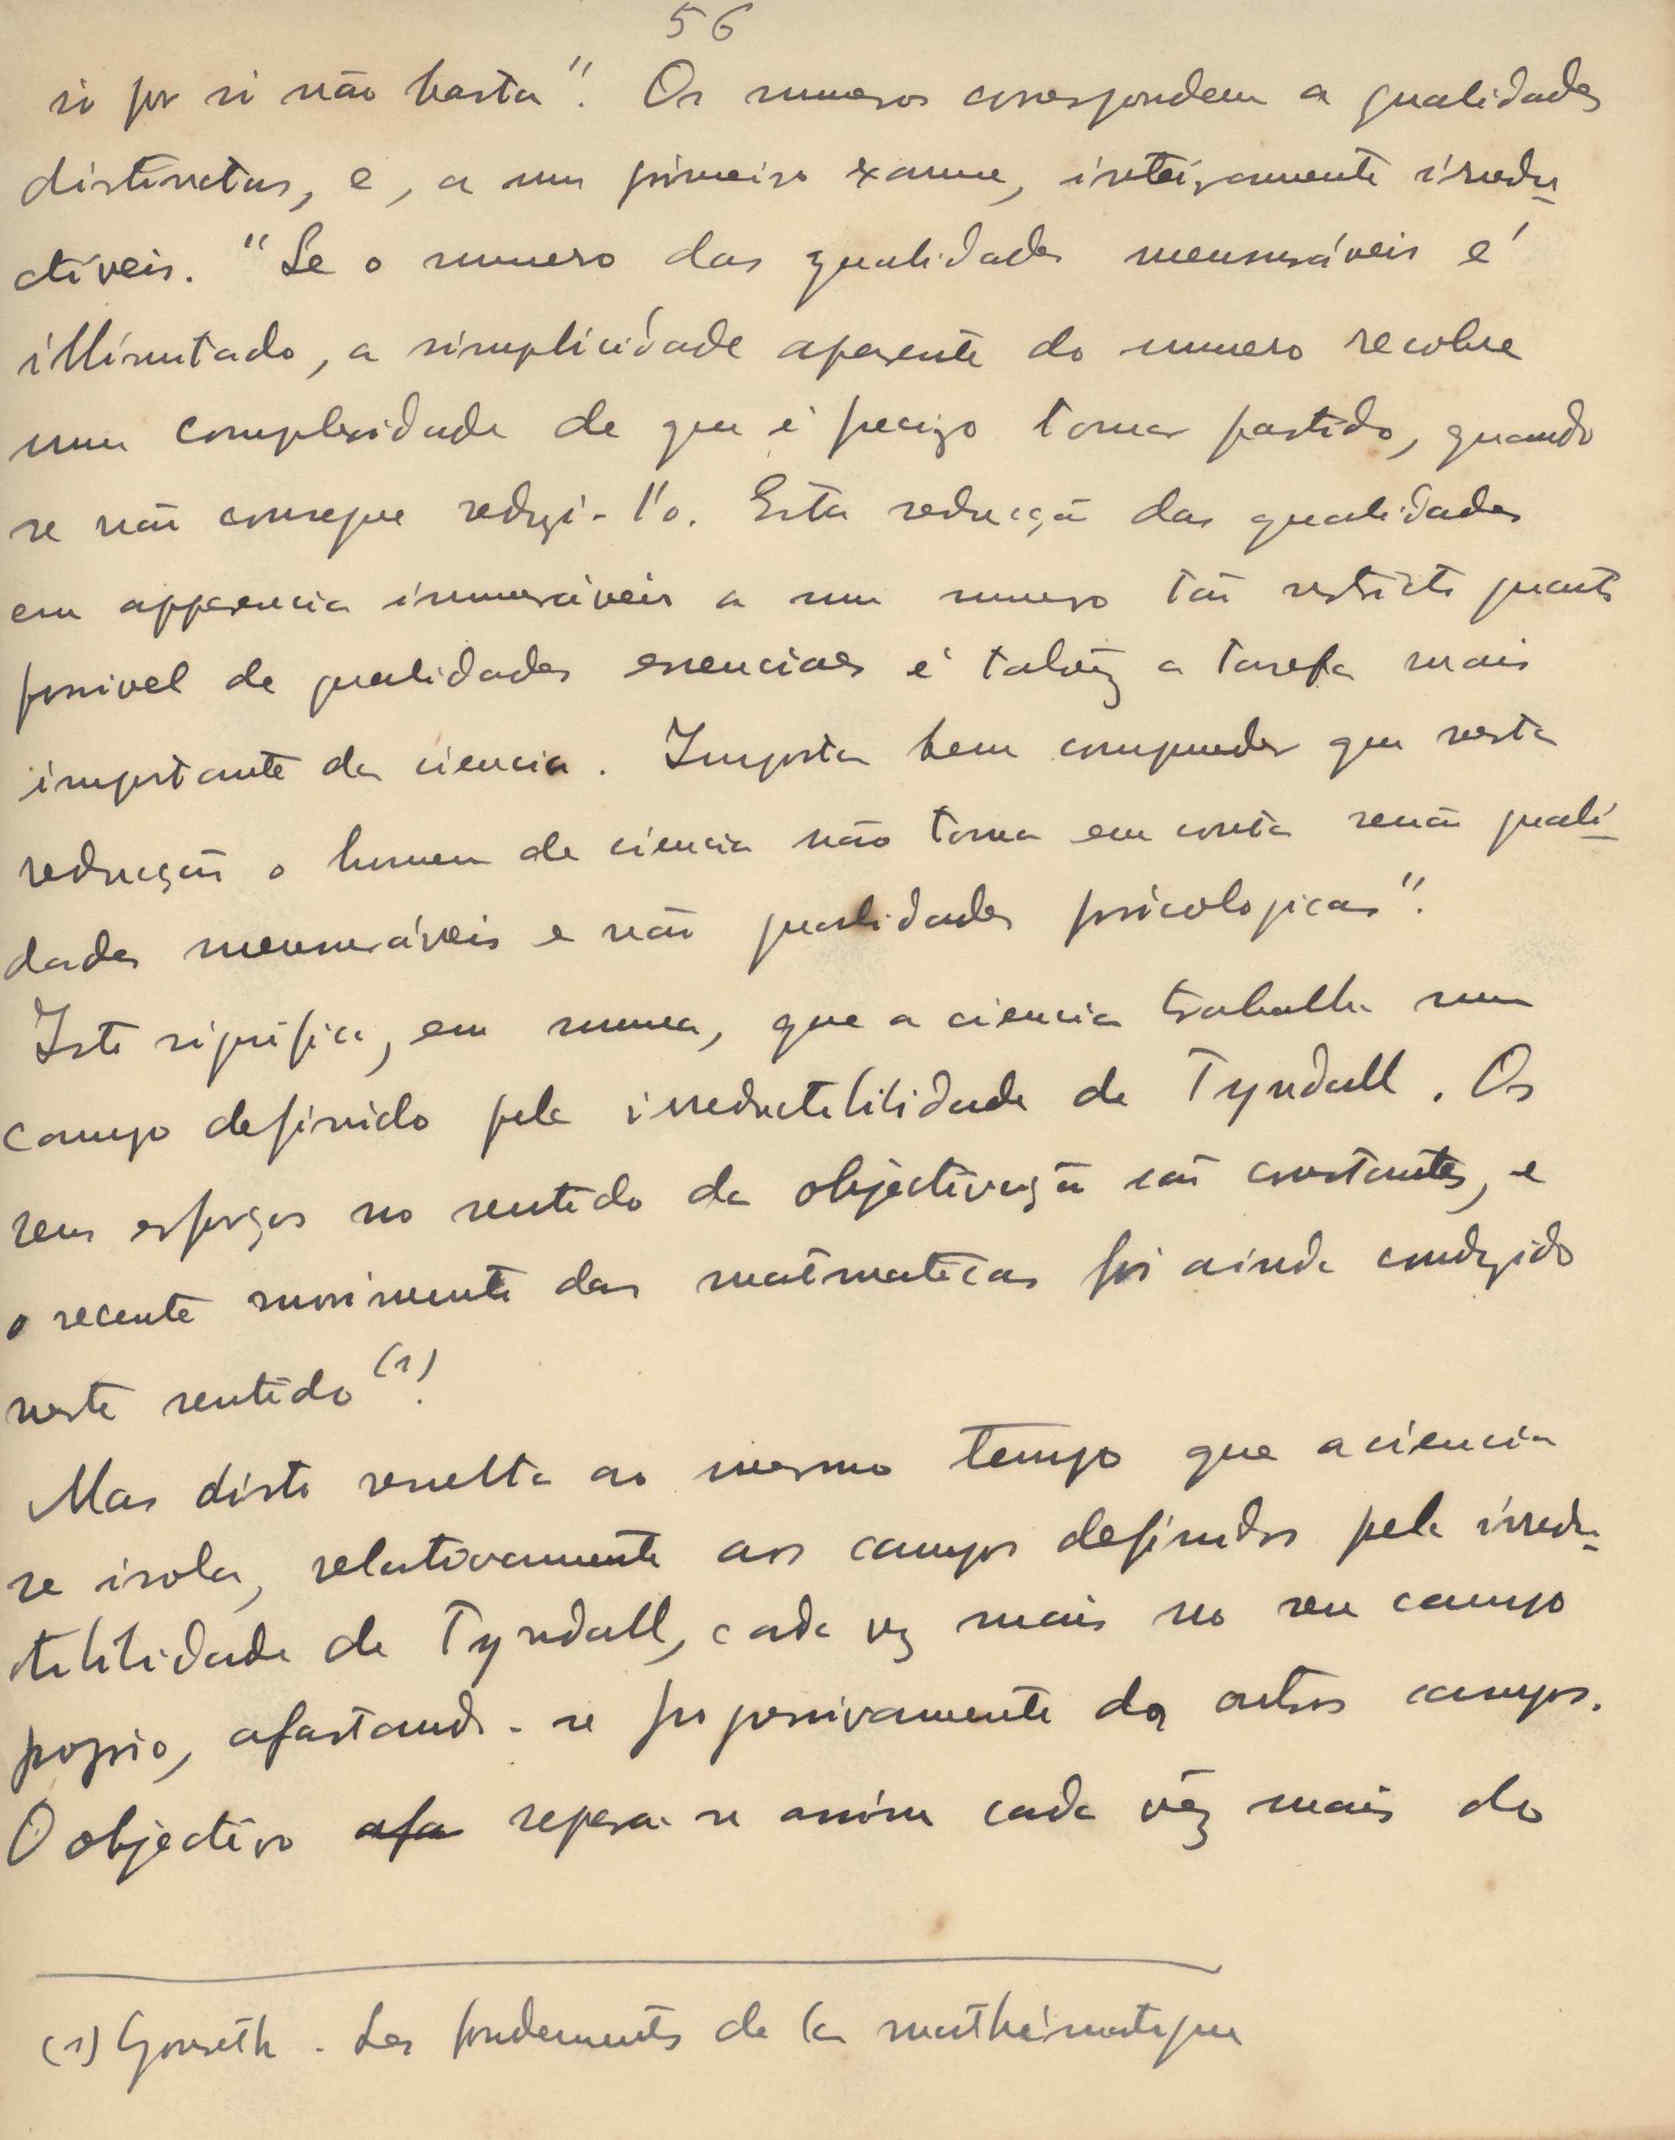 56
si por si não basta". Os numeros correspondem a qualidades
distinctas, e, a um primeiro exame, inteiramente irredu-
ctiveis. "Se o numero das qualidades mensuráveis é
illimitado, a simplicidade aparente do numero recobre
uma complexidade de que é preciso tomar partido, quando
se não consegue reduzi-l'o. Esta reducção das qualidades
em apparencia inumeráveis a um numero tão restricto quanto
possivel de qualidades essenciaes é talvêz a tarefa mais
importante da ciencia. Importa bem comprender que nesta
reducção o homem de ciencia não toma em conta senão quali-
dades mensuráveis e não qualidades psicologicas".
Isto significa, em summa, que a ciencia trabalha num
campo definido pela irreductibilidade de Tyndall. Os
seus esforços no sentido da objectivação são constantes, e
o recente movimento das matematicas foi ainda conduzido
neste sentido (1).
Mas disto resulta ao mesmo tempo que a ciencia
se isola, relativamente aos campos definidos pela irredu-
tibilidade de Tyndall, cada vez mais no seu campo
proprio, afastando-se progressivamente dos outros campos.
O objectivo afa separa-se assim cada vêz mais do
(1) Gonseth - Les fondements de la mathématique